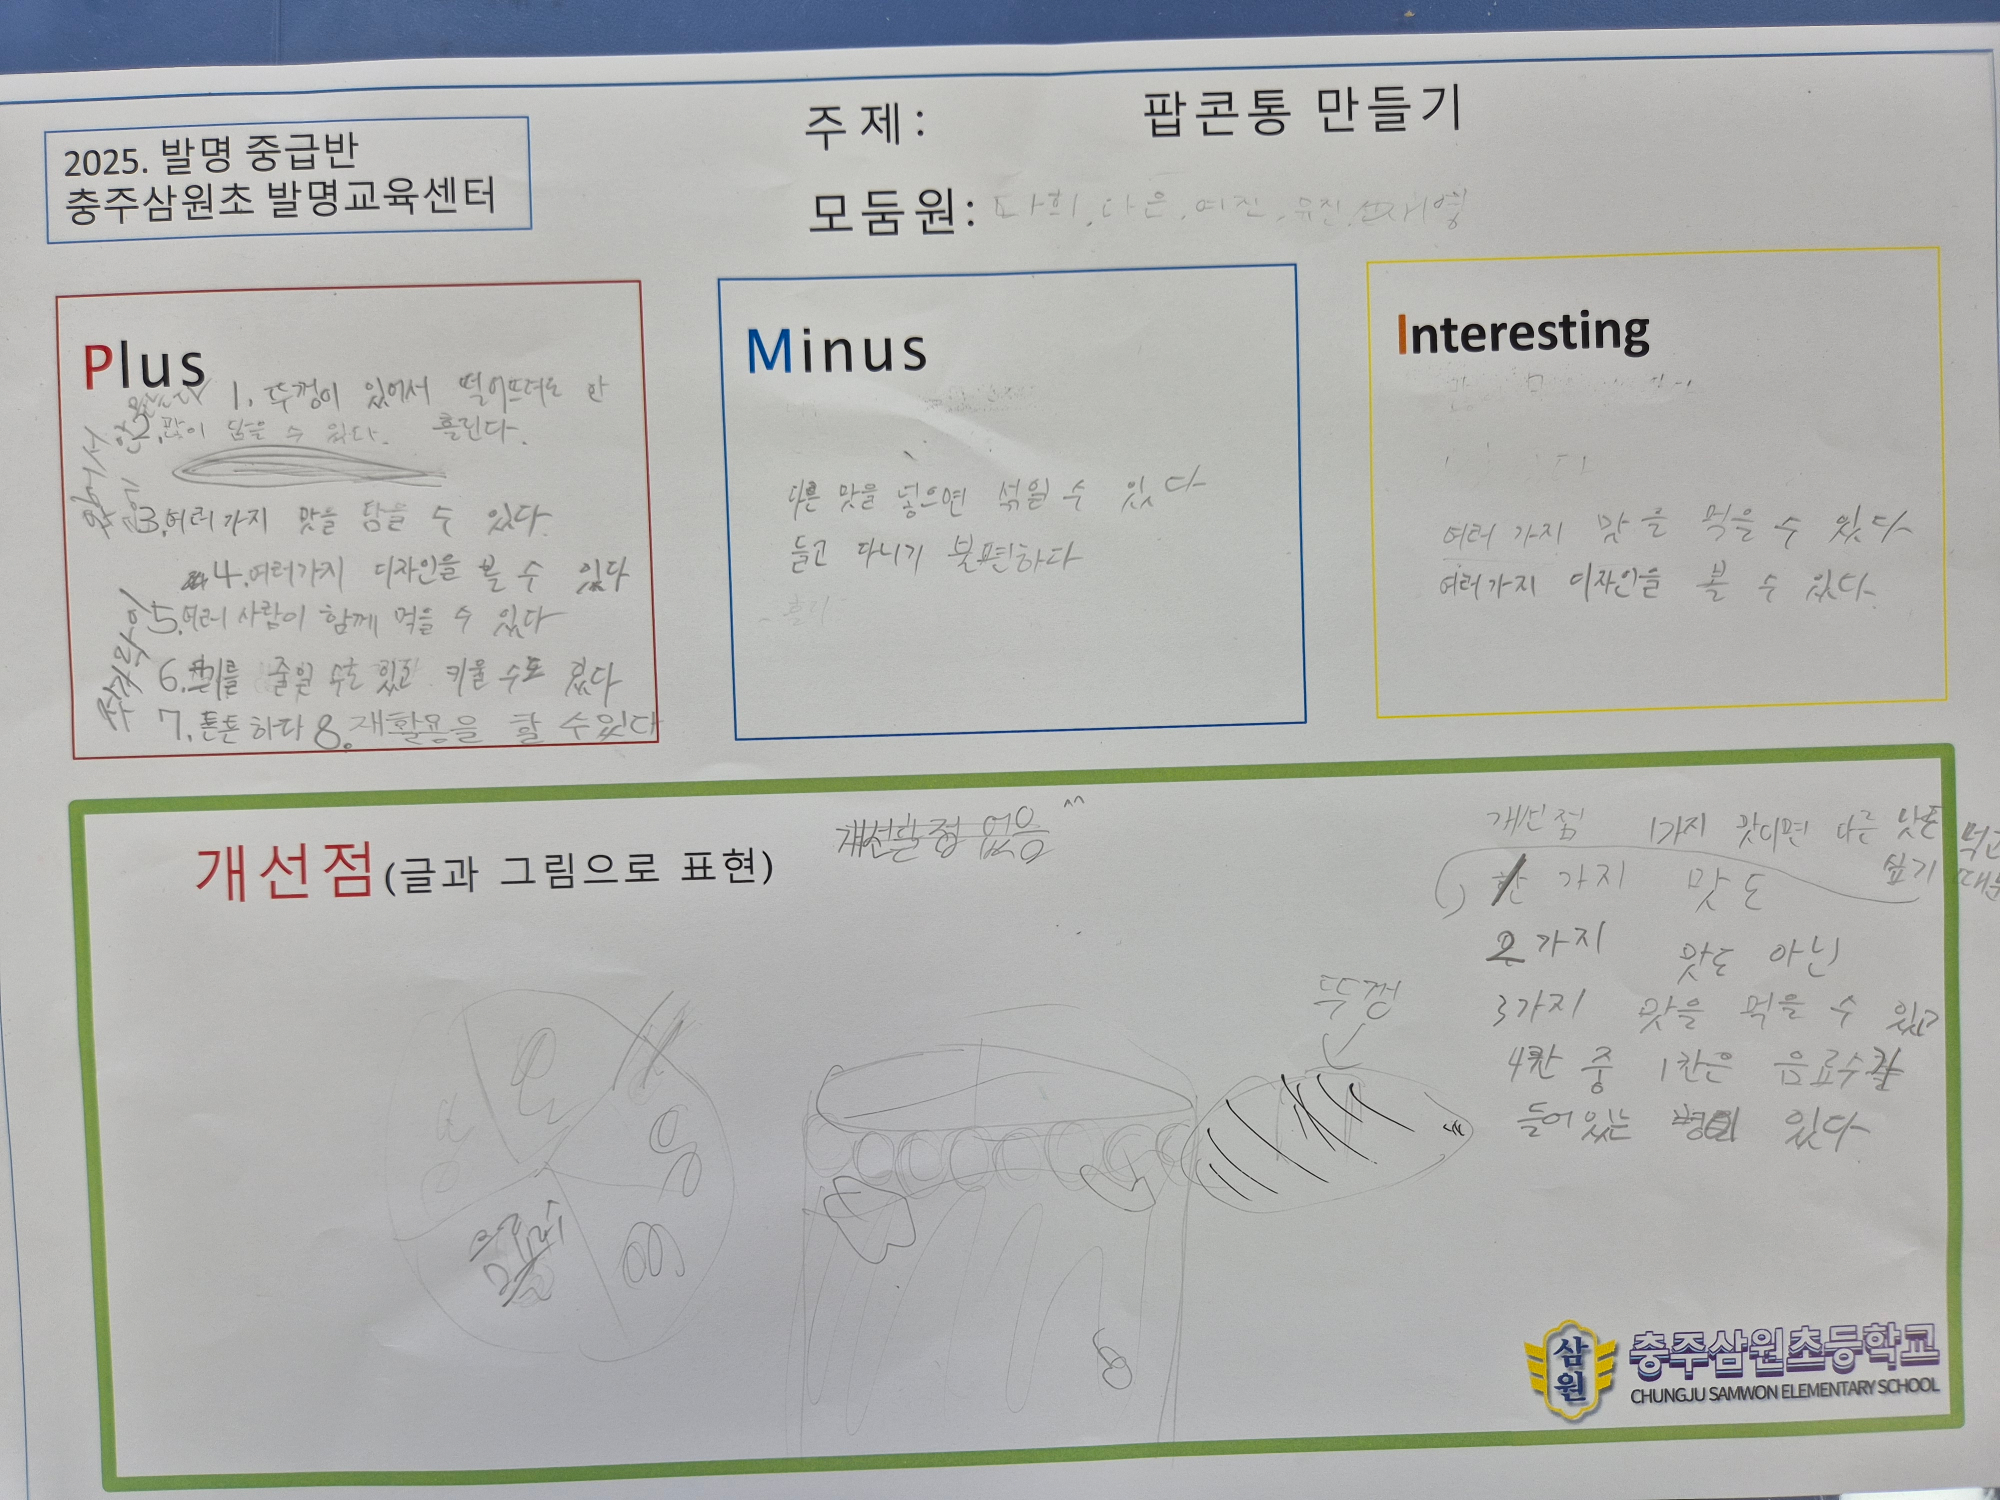 2025. 발명 중급반
충주삼원초 발명교육센터
주제: 팝콘통 만들기
모둠원: 다은, 예진, 유진,
Plus
1. 뚜껑이 있어서 떨어뜨려도 안
흘린다.
2. 많이 담을 수 있다.
3. 여러 가지 맛을 담을 수 있다.
4. 여러가지 디자인을 볼 수 있다
5. 여러 사람이 함께 먹을 수 있다
6. 줄일 수도 있고 키울 수도 있다
7. 튼튼하다 8. 재활용을 할 수 있다
Minus
다른 맛을 넣으면 섞일 수 있다
들고 다니기 불편하다
Interesting
여러 가지 맛을 먹을 수 있다
여러가지 디자인을 볼 수 있다.
개선점(글과 그림으로 표현)
개선할 점 없음 ^^
개선점 1가지 맛이면 다른 맛도 먹고
싶기 때문
가지 맛도
2가지 맛도 아닌
3가지 맛을 먹을 수 있고
4칸 중 1칸은 음료수가
들어있는 병이 있다
뚜껑
삼원
충주삼원초등학교
CHUNGJU SAMWON ELEMENTARY SCHOOL